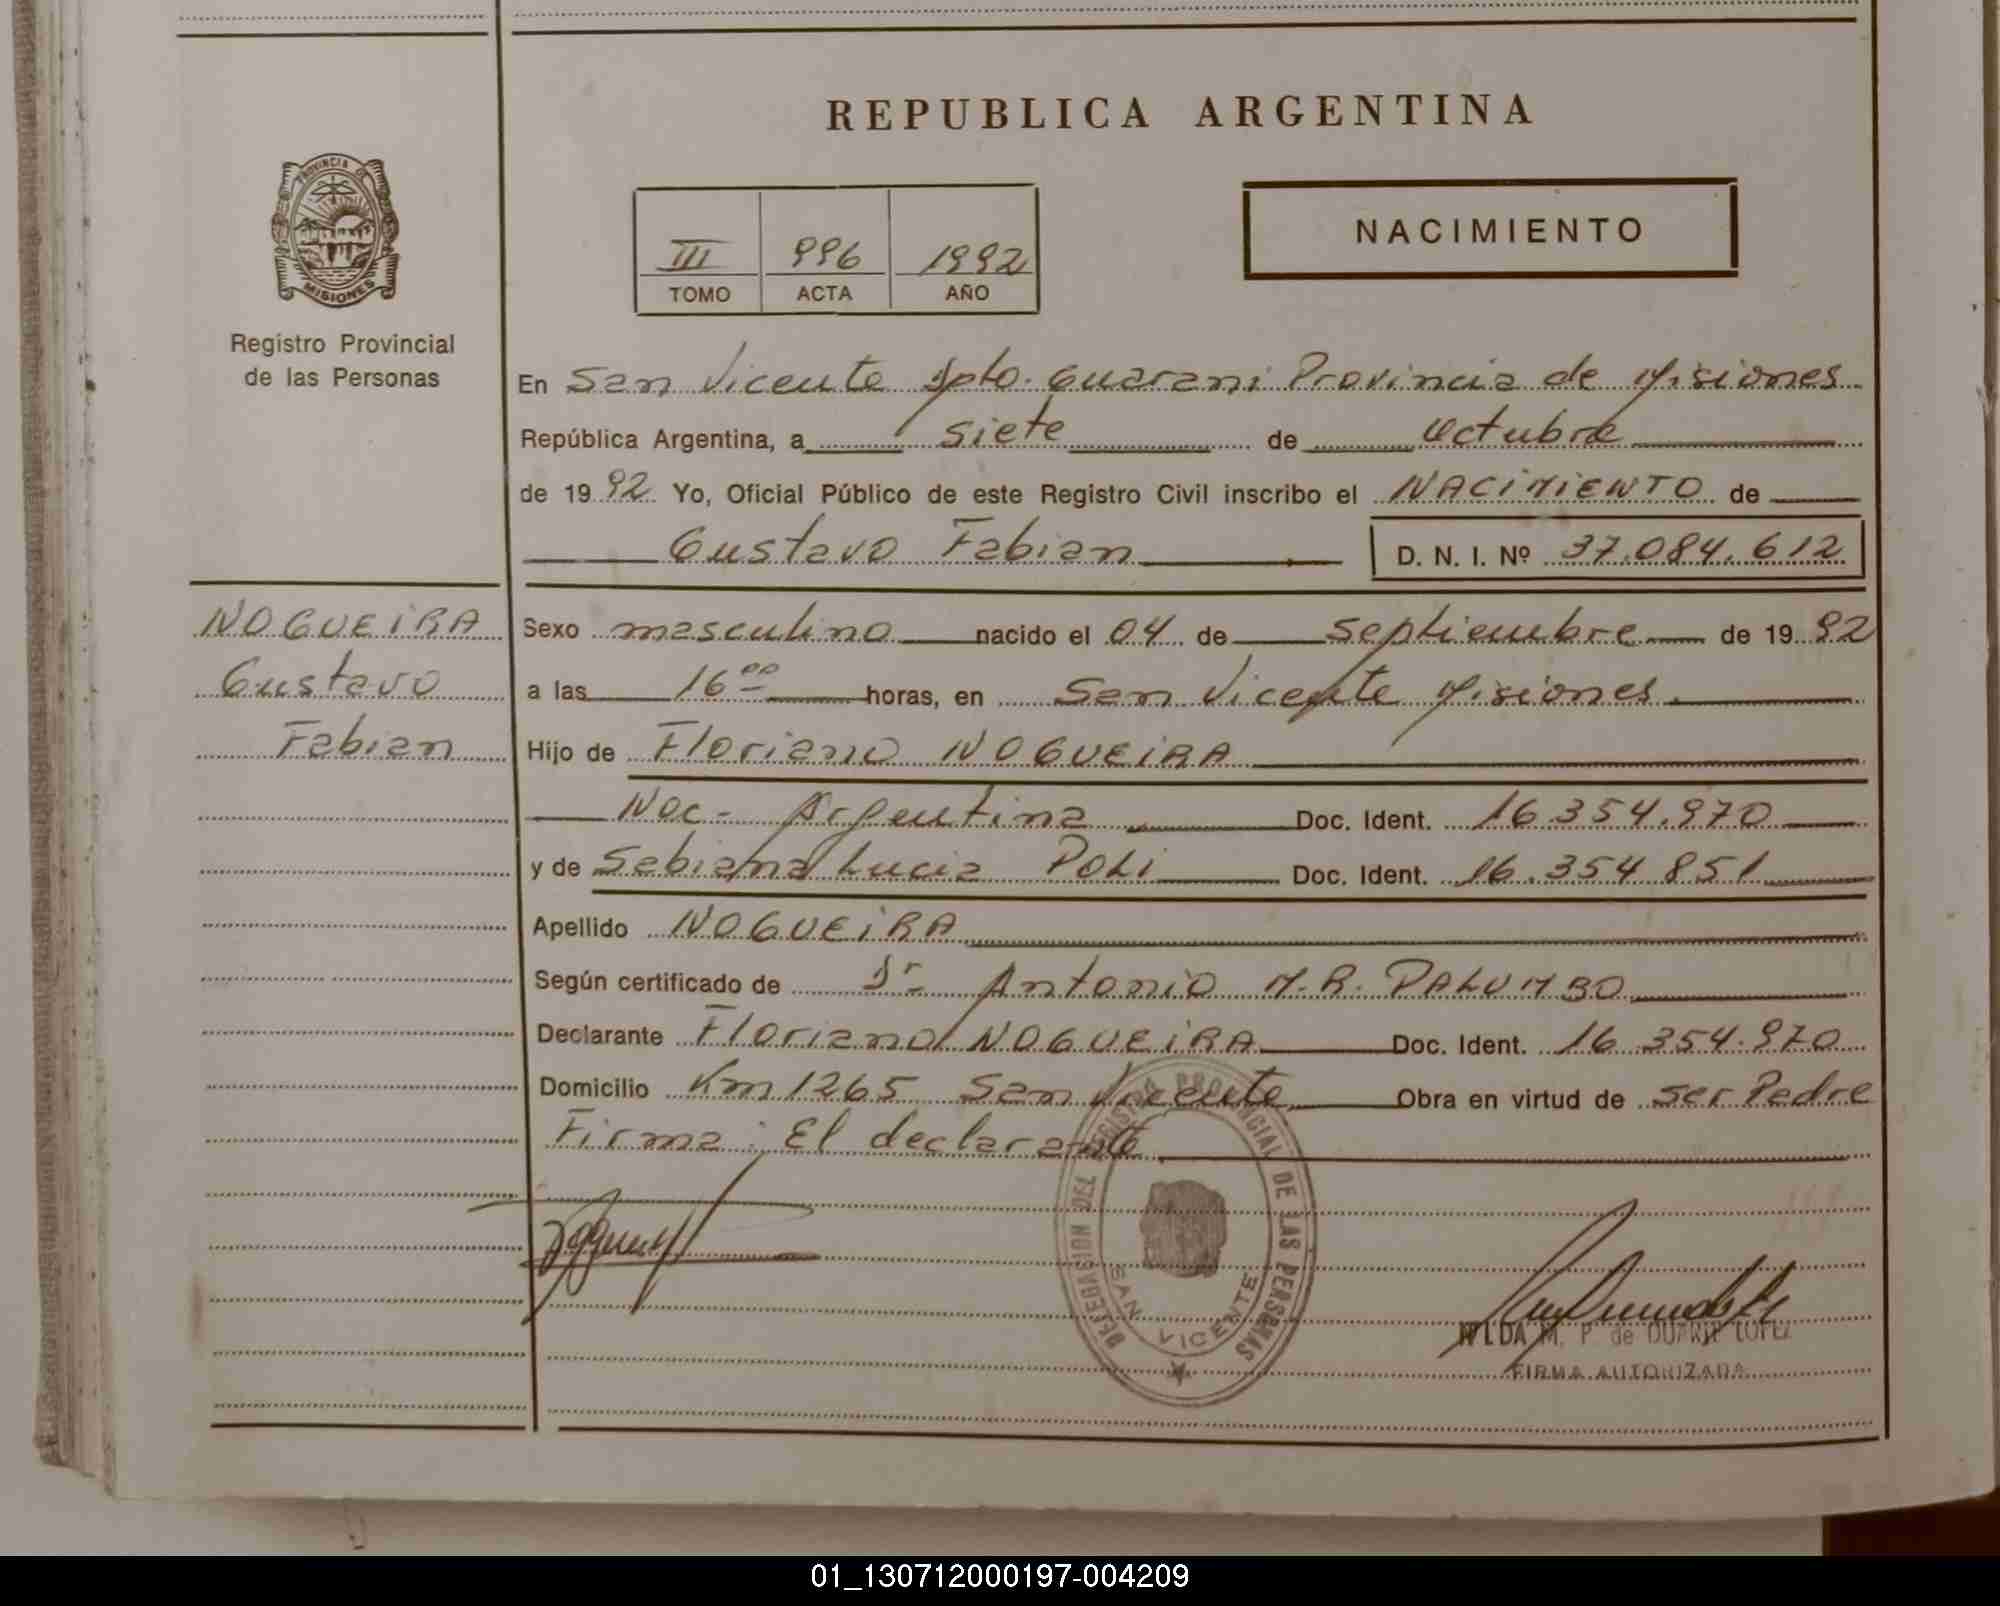 REPUBLICA ARGENTINA
PROVINCIA DE
MISIONES
Registro Provincial
de las Personas
III 996 1992
TOMO ACTA AÑO
NACIMIENTO
En San Vicente Dpto. Guarani Provincia de Misiones
República Argentina, a siete de Octubre
de 19 92 Yo, Oficial Público de este Registro Civil inscribo el NACIMIENTO de
Gustavo Fabian D. N. I. Nº 37.084.612
NOGUEIRA
Gustavo
Fabian
Sexo masculino nacido el 04 de septiembre de 19 92
a las 16 00 horas, en San Vicente Misiones
Hijo de Floriano NOGUEIRA
Nac- Argentina Doc. Ident. 16.354.970
y de Sebiana Lucia POLI Doc. Ident. 16.354 851
Apellido NOGUEIRA
Según certificado de Dr Antonio M.R. PALUMBO
Declarante Floriano NOGUEIRA Doc. Ident. 16 354.970
Domicilio Km 1265 San Vicente Obra en virtud de ser Padre
Firma: El declarante
DELEGACION DEL REGISTRO PROVINCIAL DE LAS PERSONAS
SAN VICENTE
M. P. de DUARTE LOPEZ
FIRMA AUTORIZADA
01_130712000197-004209